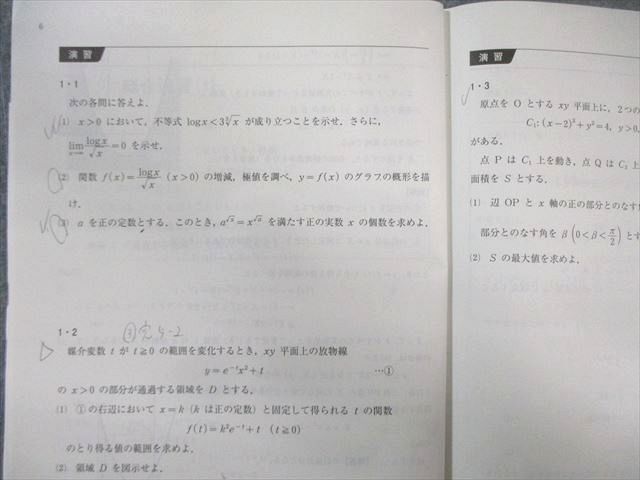 6
演習
1・1
次の各問に答えよ.
(1) x>0 において, 不等式 log x<3∛x が成り立つことを示せ. さらに,
lim_{x→∞} log x/√x =0 を示せ.
(2) 関数 f(x)= log x/√x (x>0) の増減, 極値を調べ, y=f(x) のグラフの概形を描
け.
(3) a を正の定数とする. このとき, a^{√x}=x^{√a} を満たす正の実数 x の個数を求めよ.
1・2
媒介変数 t が t≧0 の範囲を変化するとき, xy 平面上の放物線
y=e^{-t}x²+t …①
の x>0 の部分が通過する領域を D とする.
(1) ①の右辺において x=k (k は正の定数) と固定して得られる t の関数
f(t)=k²e^{-t}+t (t≧0)
のとり得る値の範囲を求めよ.
(2) 領域 D を図示せよ.
演習
1・3
原点を O とする xy 平面上に, 2つの
C₁:(x−2)²+y²=4, y>0,
がある.
点 P は C₁ 上を動き, 点 Q は C₂ 上
面積を S とする.
(1) 辺 OP と x 軸の正の部分とのなす
部分とのなす角を β (0<β<π/2) とす
(2) S の最大値を求めよ.